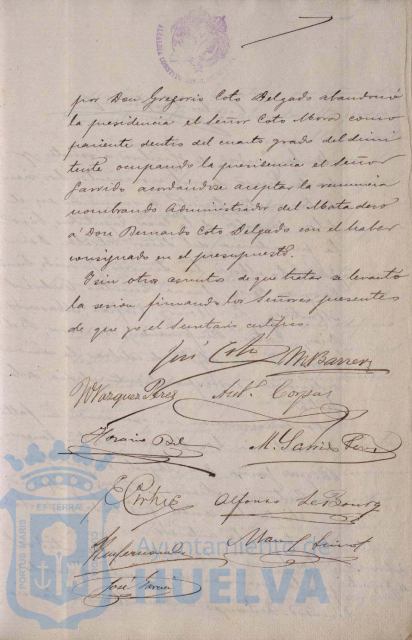 por Don Gregorio Coto Delgado abandonó
la presidencia el Señor Coto Mora como
pariente dentro del cuarto grado del dimi
tente ocupando la presidencia el Señor
Garrido acordándose aceptar la renuncia
nombrando Administrador del Matadero
á Don Bernardo Coto Delgado con el haber
consignado en el presupuesto.
Y sin otros asuntos de que tratar se levantó
la sesion firmando los Señores presentes
de que yo el Secretario certifico.
José Coto M Barrera
Vazquez Perez Antº
Horacio Bel M. Garrido
Alfonso Le Bourg
José García
PORTUS MARIS ET TERRAE
Ayuntamiento de
HUELVA